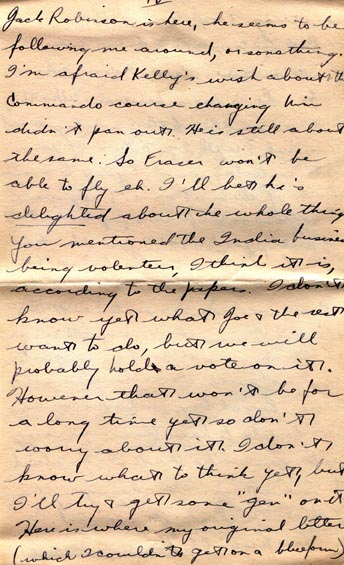 Jack Robinson is here, he seems to be
following me around, or somthing.
I'm afraid Kelly's wish about the
Commando course changing him
didn't pan out. He is still about
the same. So Fraser won't be
able to fly eh. I'll bet he's
delighted about the whole thing
You mentioned the India business
being volenteer, I think it is,
according to the papers. I don't
know yet what Joe & the rest
want to do, but we will
probably hold a vote on it.
However that won't be for
a long time yet so don't
worry about it. I don't
know what to think yet, but
I'll try & get some "gen" on it
Here is where my original letter
(which I couldn't get on a blueform)